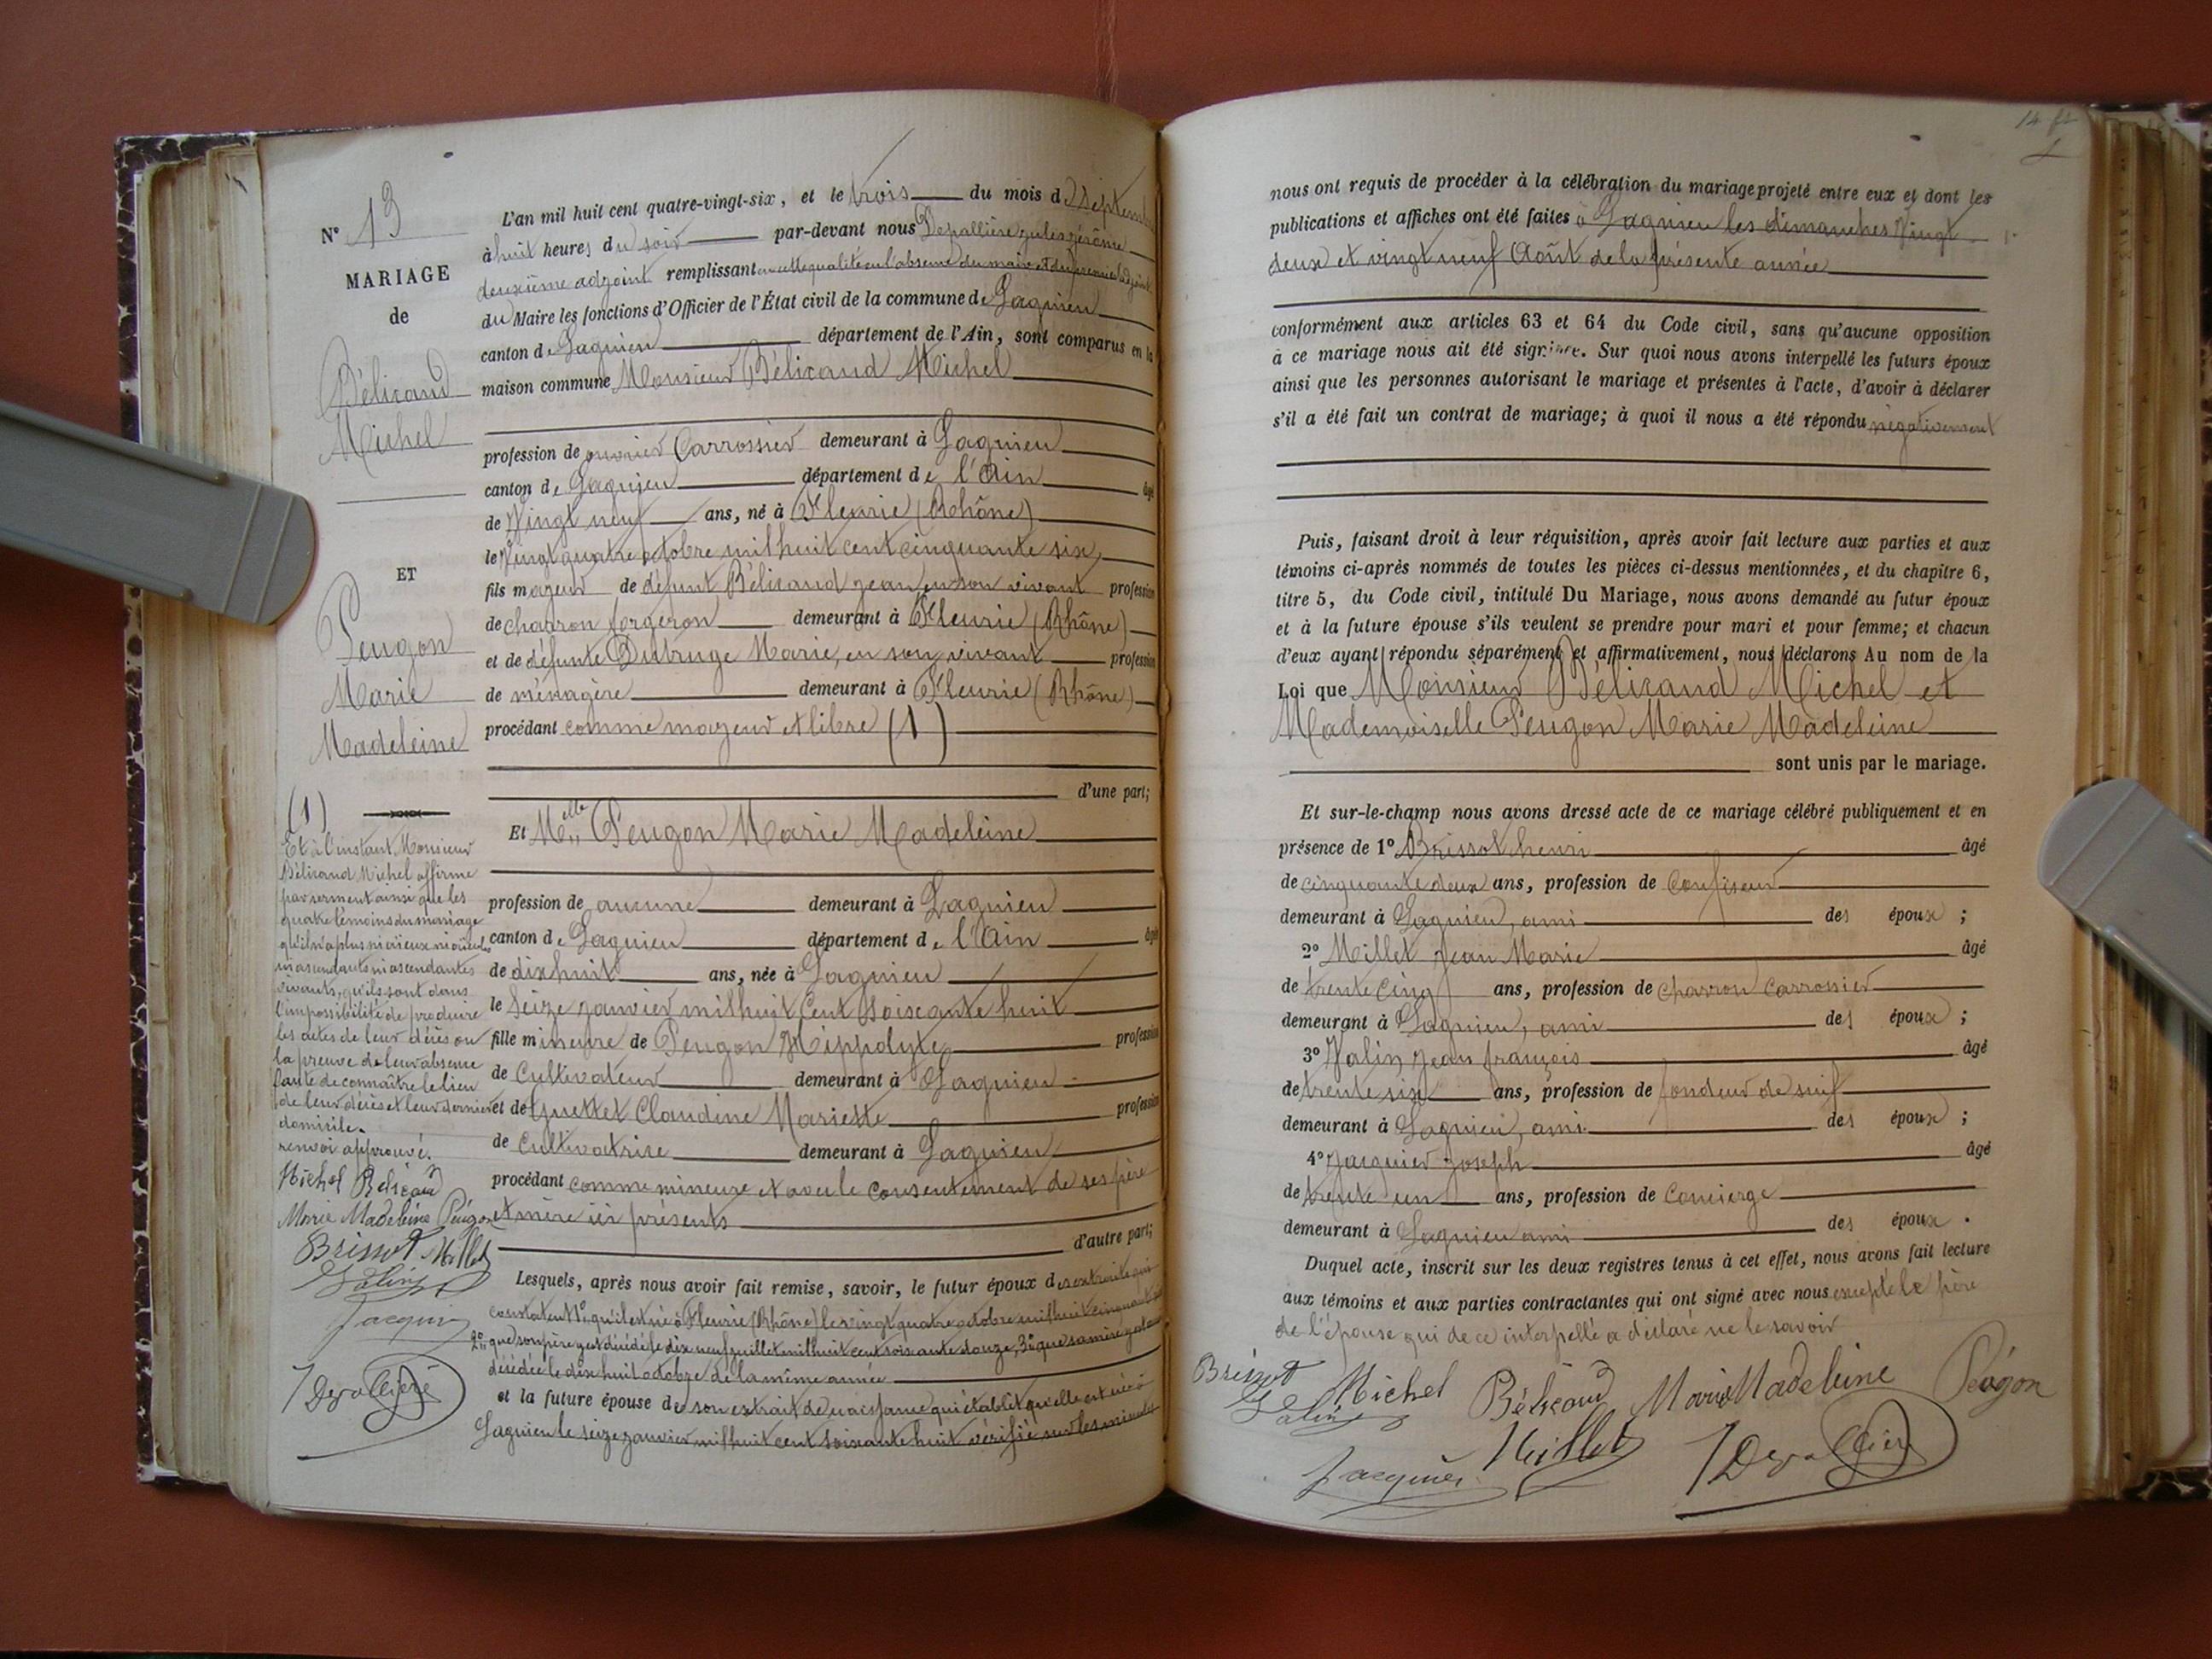 N° 13
MARIAGE
de
Bélicand
Michel
ET
Peugon
Marie
Madeleine
(1)
Et à l'instant Monsieur
Bélicand Michel affirme
par serment ainsi que les
quatre témoins du mariage
qu'il n'a plus ni aïeux ni aïeules
ni ascendants ni ascendantes
vivants, qu'ils sont dans
l'impossibilité de produire
les actes de leur décès ou
la preuve de leur absence
faute de connaître le lieu
de leur décès et leur dernier
domicile.
renvoi approuvé.
Michel Bélicand
Marie Madeleine Peugon
Brissot Millet
Valin
Jacquier
J Depallière
L'an mil huit cent quatre-vingt-six, et le trois du mois de Septembre
à huit heures du soir par-devant nous Depallière Jules Jérôme
deuxième adjoint remplissant en cette qualité en l'absence du maire et du premier adjoint
du Maire les fonctions d'Officier de l'État civil de la commune de Lagnieu
canton de Lagnieu département de l'Ain, sont comparus en la
maison commune Monsieur Bélicand Michel
profession de ouvrier Carrossier demeurant à Lagnieu
canton de Lagnieu département de l'Ain âgé
de Vingt neuf ans, né à Fleurie (Rhône)
le Vingt quatre octobre mil huit cent cinquante six,
fils majeur de défunt Bélicand Jean en son vivant profession
de charron forgeron demeurant à Fleurie (Rhône)
et de défunte Dutruge Marie, en son vivant profession
de ménagère demeurant à Fleurie (Rhône)
procédant comme majeur et libre (1)
d'une part;
Et Melle Peugon Marie Madeleine
profession de aucune demeurant à Lagnieu
canton de Lagnieu département de l'Ain âgé
de dix huit ans, née à Lagnieu
le Seize janvier mil huit Cent Soixante huit
fille mineure de Peugon Hippolyte profession
de Cultivateur demeurant à Lagnieu
et de Guettet Claudine Mariette profession
de Cultivatrice demeurant à Lagnieu
procédant comme mineure et avec le consentement de ses père
et mère ici présents
d'autre part;
Lesquels, après nous avoir fait remise, savoir, le futur époux des extraits qui
constatent 1° qu'il est né à Fleurie (Rhône) le vingt quatre octobre mil huit cinquante six
2° que son père y est décédé le dix neuf juillet mil huit cent soixante douze, 3° que sa mère y est
décédée le dix huit octobre de la même année
et la future épouse de son extrait de naissance qui établit qu'elle est née à
Lagnieu le seize janvier mil huit cent soixante huit vérifié sur les minutes
nous ont requis de procéder à la célébration du mariage projeté entre eux et dont les
publications et affiches ont été faites à Lagnieu les dimanches Vingt
deux et vingt neuf Août de la présente année
conformément aux articles 63 et 64 du Code civil, sans qu'aucune opposition
à ce mariage nous ait été signifiée. Sur quoi nous avons interpellé les futurs époux
ainsi que les personnes autorisant le mariage et présentes à l'acte, d'avoir à déclarer
s'il a été fait un contrat de mariage; à quoi il nous a été répondu négativement
Puis, faisant droit à leur réquisition, après avoir fait lecture aux parties et aux
témoins ci-après nommés de toutes les pièces ci-dessus mentionnées, et du chapitre 6,
titre 5, du Code civil, intitulé Du Mariage, nous avons demandé au futur époux
et à la future épouse s'ils veulent se prendre pour mari et pour femme; et chacun
d'eux ayant répondu séparément et affirmativement, nous déclarons Au nom de la
Loi que Monsieur Bélicand Michel et
Mademoiselle Peugon Marie Madeleine
sont unis par le mariage.
Et sur-le-champ nous avons dressé acte de ce mariage célébré publiquement et en
présence de 1° Brissot henri âgé
de cinquante deux ans, profession de Confiseur
demeurant à Lagnieu, ami des époux ;
2° Millet Jean Marie âgé
de trente Cinq ans, profession de charron Carrossier
demeurant à Lagnieu, ami des époux ;
3° Valin Jean françois âgé
de trente six ans, profession de fondeur de suif
demeurant à Lagnieu, ami des époux ;
4° Jacquier Joseph âgé
de trente un ans, profession de Concierge
demeurant à Lagnieu ami des époux .
Duquel acte, inscrit sur les deux registres tenus à cet effet, nous avons fait lecture
aux témoins et aux parties contractantes qui ont signé avec nous excepté le père
de l'épouse qui de ce interpellé a déclaré ne le savoir
Brissot Michel Bélicand Marie Madeleine Peugon
Valin
Jacquier Millet J Depallière